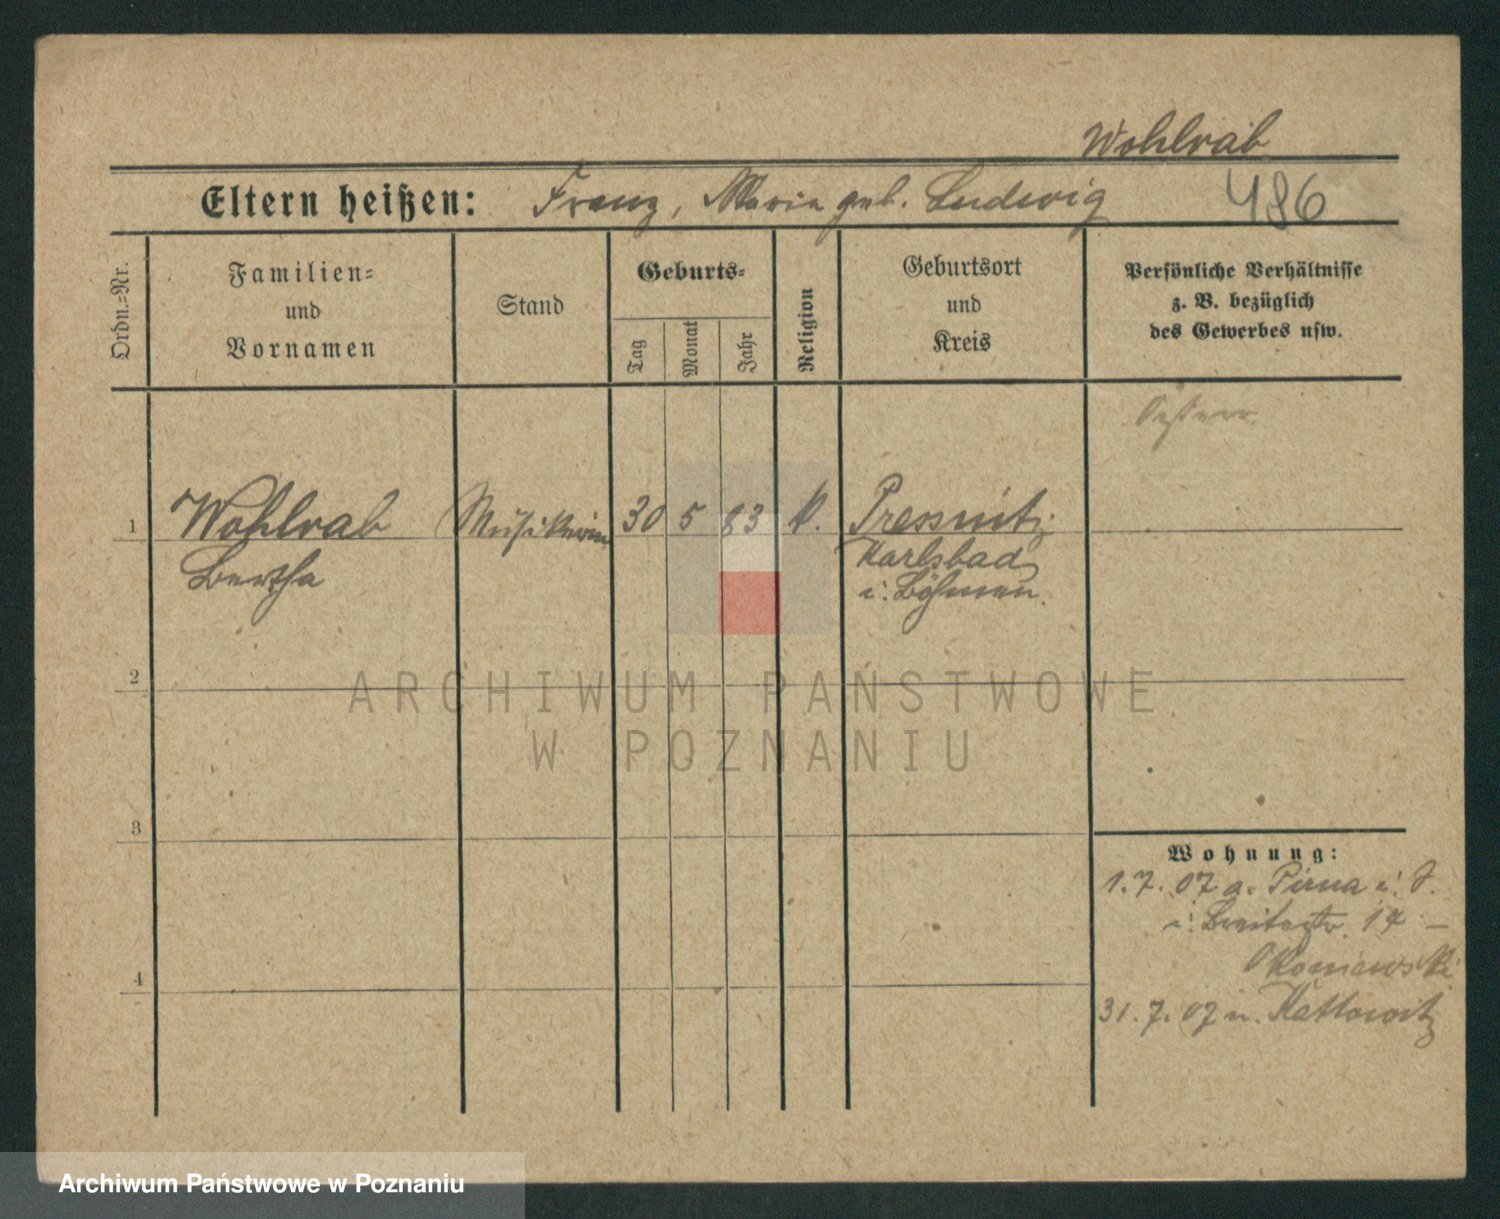 Wohlrab
Eltern heißen: Franz, Maria geb. Ludwig 486
Ordn.=Nr.
Familien=
und
Vornamen
Stand
Geburts=
Tag
Monat
Jahr
Religion
Geburtsort
und
Kreis
Persönliche Verhältnisse
z. B. bezüglich
des Gewerbes usw.
Österr.
1 Wohlrab Musikerin 30 5 83 k. Pressnitz
Bertha Karlsbad
i. Böhmen
2
ARCHIWUM PAŃSTWOWE
W POZNANIU
3
Wohnung:
1. 7. 07 a. Pirna i. S.
i. Breitestr. 14 –
Okoniewski
4
31. 7. 07 n. Kattowitz
Archiwum Państwowe w Poznaniu